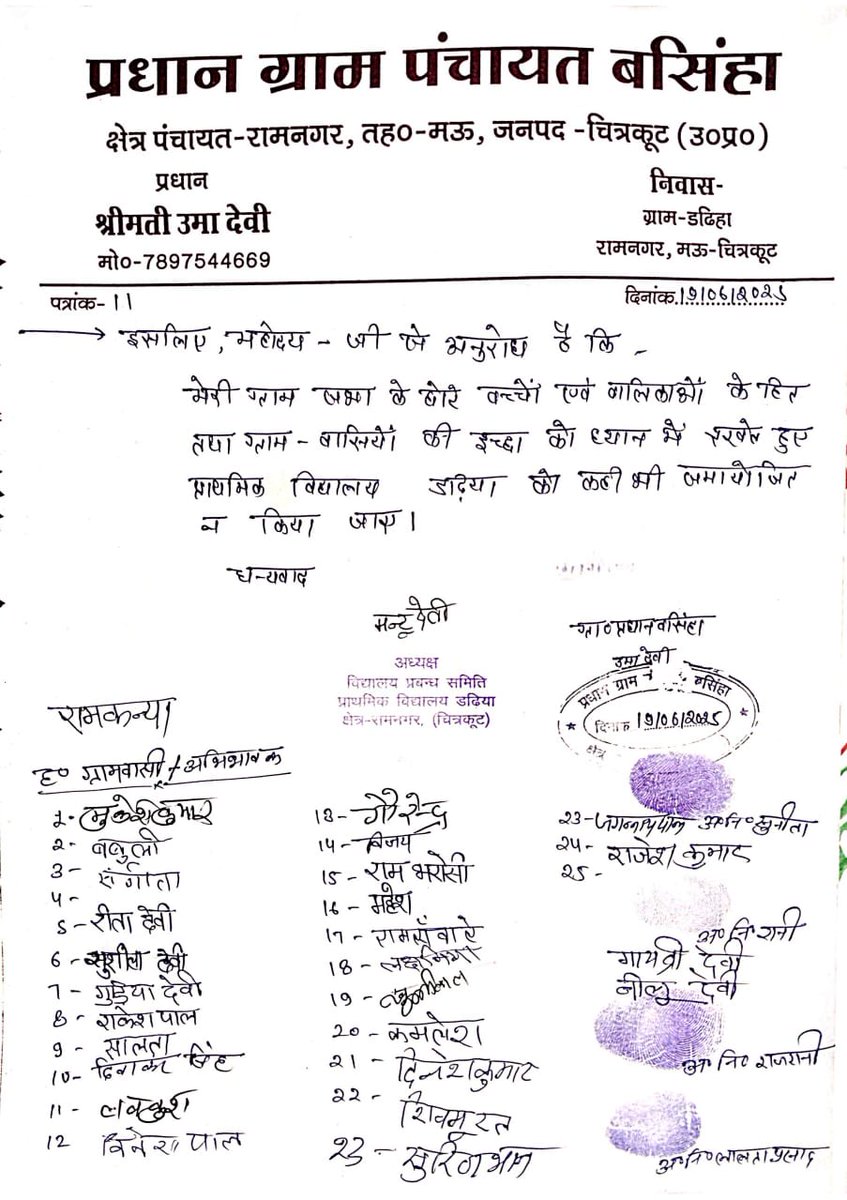 प्रधान ग्राम पंचायत बसिंहा
क्षेत्र पंचायत-रामनगर, तह०-मऊ, जनपद -चित्रकूट (उ०प्र०)
प्रधान
श्रीमती उमा देवी
मो०-7897544669
निवास-
ग्राम-डढिहा
रामनगर, मऊ-चित्रकूट
पत्रांक- 11
दिनांक.19/06/2025
इसलिए, महोदय - जी से अनुरोध है कि -
मेरी ग्राम सभा के छोटे बच्चों एवं बालिकाओं के हित
तथा ग्राम - वासियों की इच्छा को ध्यान में रखते हुए
प्राथमिक विद्यालय डढ़िया को कहीं भी समायोजित
न किया जाए।
धन्यवाद
मन्टू देवी
अध्यक्ष
विद्यालय प्रबन्ध समिति
प्राथमिक विद्यालय डढिया
क्षेत्र-रामनगर, (चित्रकूट)
ग्रा० प्रधान बसिंहा
उमा देवी
प्रधान ग्राम बसिंहा
दिनांक 19/06/2025
क्षेत्र
रामकन्या
ह० ग्रामवासी + अभिभावक
1- मुकेश कुमार
2- बबुली
3 - संगीता
4 -
5 - रीता देवी
6 - सुशीला देवी
7 - गुड़िया देवी
8 - राकेश पाल
9 -
10- दिवाकर सिंह
11 - लवकुश
12 पाल
13-
14 - विजय
15 - राम भरोसी
16 - महेश
17 -
18 -
19 -
20 - कमलेश
21 - दिनेश कुमार
22 -
23 -
23- अ० नि० सुनीता
24- राजेश कुमार
25 -
अ० नि० रानी
गायत्री देवी
नीलू देवी
अ० नि० राजरानी
अ० नि० लालता प्रसाद